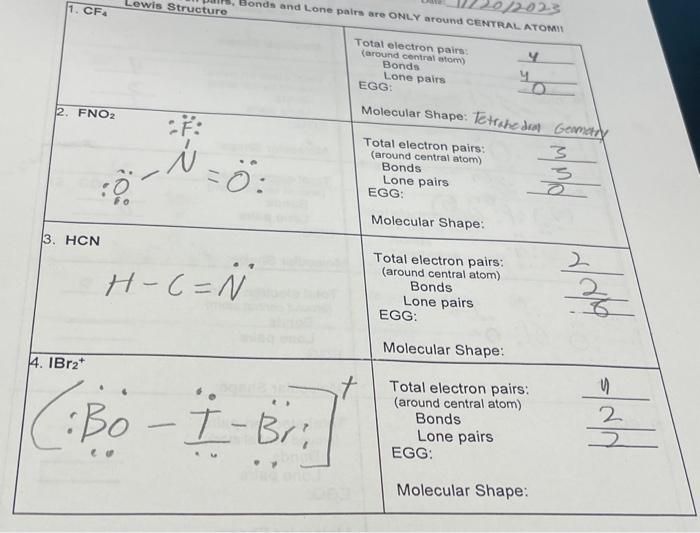 11/20/2023
Lewis Structure
Bonds and Lone pairs are ONLY around CENTRAL ATOM!!
1. CF4
Total electron pairs: 4
(around central atom)
Bonds 4
Lone pairs 0
EGG:
Molecular Shape: Tetrahedral Geometry
2. FNO2
:F:
N
:O - N = O:
Total electron pairs: 3
(around central atom)
Bonds 3
Lone pairs 0
EGG:
Molecular Shape:
3. HCN
H - C = N
Total electron pairs: 2
(around central atom)
Bonds 2
Lone pairs
EGG:
Molecular Shape:
4. IBr2+
(:Bo - I - Br:]+
Total electron pairs: 4
(around central atom)
Bonds 2
Lone pairs 2
EGG:
Molecular Shape: